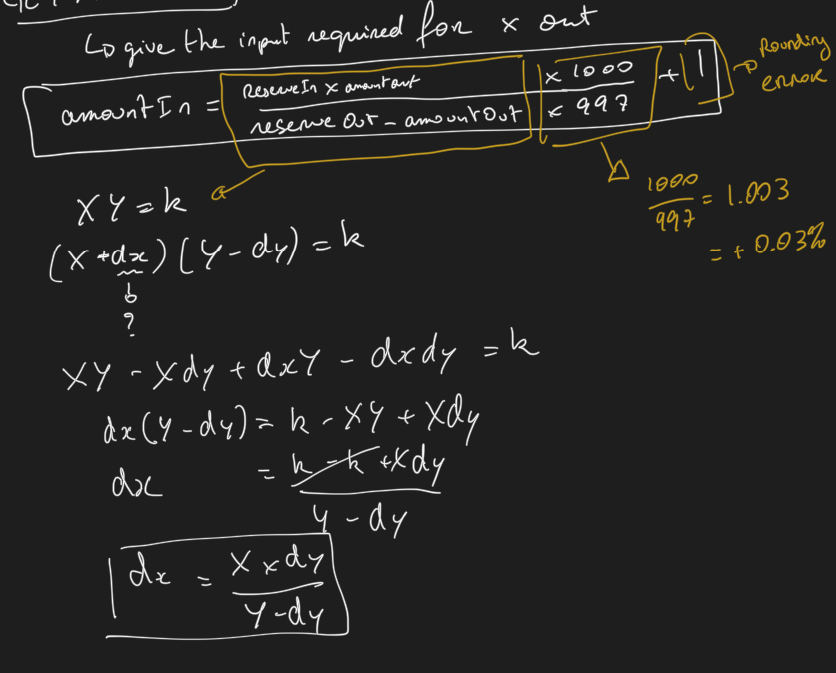 ↳ give the input required for x out
amountIn = reserveIn x amountout / reserve Out - amountOut x 1000 / x 997 + 1 → Rounding error
1000 / 997 = 1.003
= + 0.03%
XY = k
(X + dx) (Y - dy) = k
?
XY - Xdy + dxY - dxdy = k
dx(Y - dy) = k - XY + Xdy
dx = k - k + Xdy / Y - dy
dx = X x dy / Y - dy